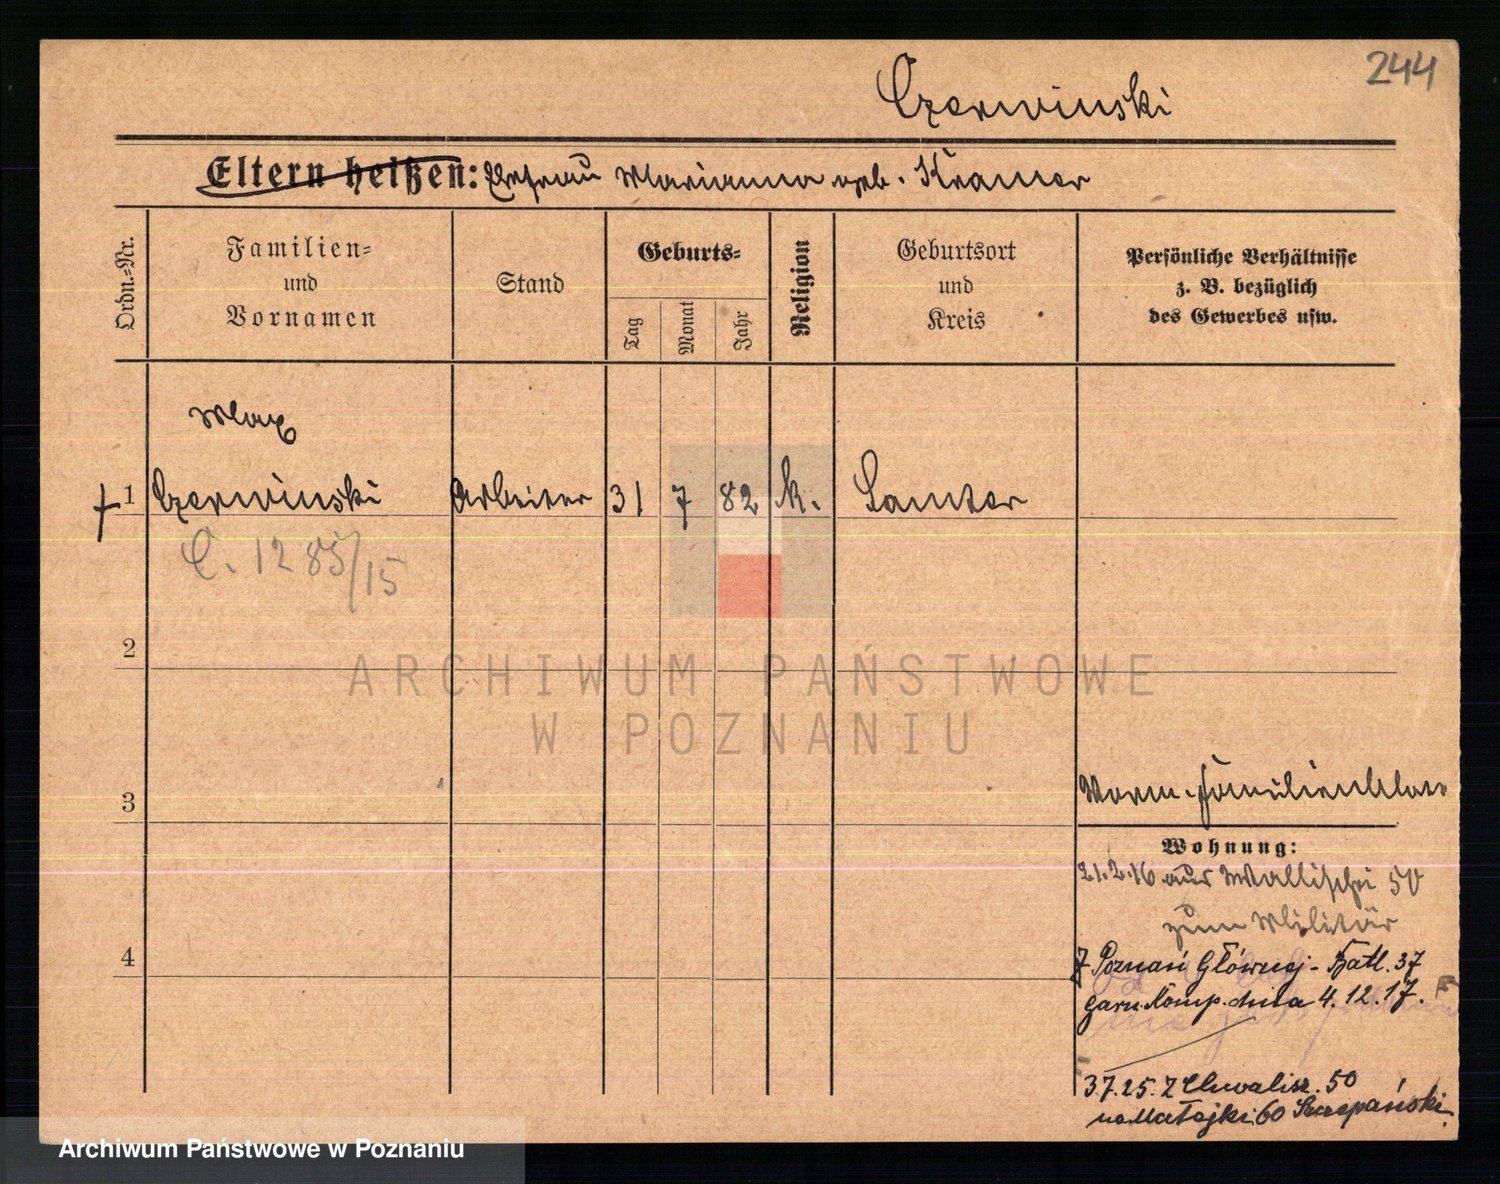 244
Czerwinski
Eltern heißen: Ehefrau Marianna geb. Kramer
Ordn.=Nr.
Familien=
und
Vornamen
Stand
Geburts=
Tag
Monat
Jahr
Religion
Geburtsort
und
Kreis
Persönliche Verhältnisse
z. B. bezüglich
des Gewerbes usw.
Max
1 Czerwinski Arbeiter 31 7 82 k. Samter
C. 1285/15
2
ARCHIWUM PAŃSTWOWE
W POZNANIU
3
Verm. Familienblatt
Wohnung:
21.2.16 aus Wallischei 50
zum Militär
4
Z Poznań Główny - Batl. 37
garn. Komp. dnia 4.12.17.
37.25. Z Chwalisz. 50
na Matejki 60 Szczepański
Archiwum Państwowe w Poznaniu